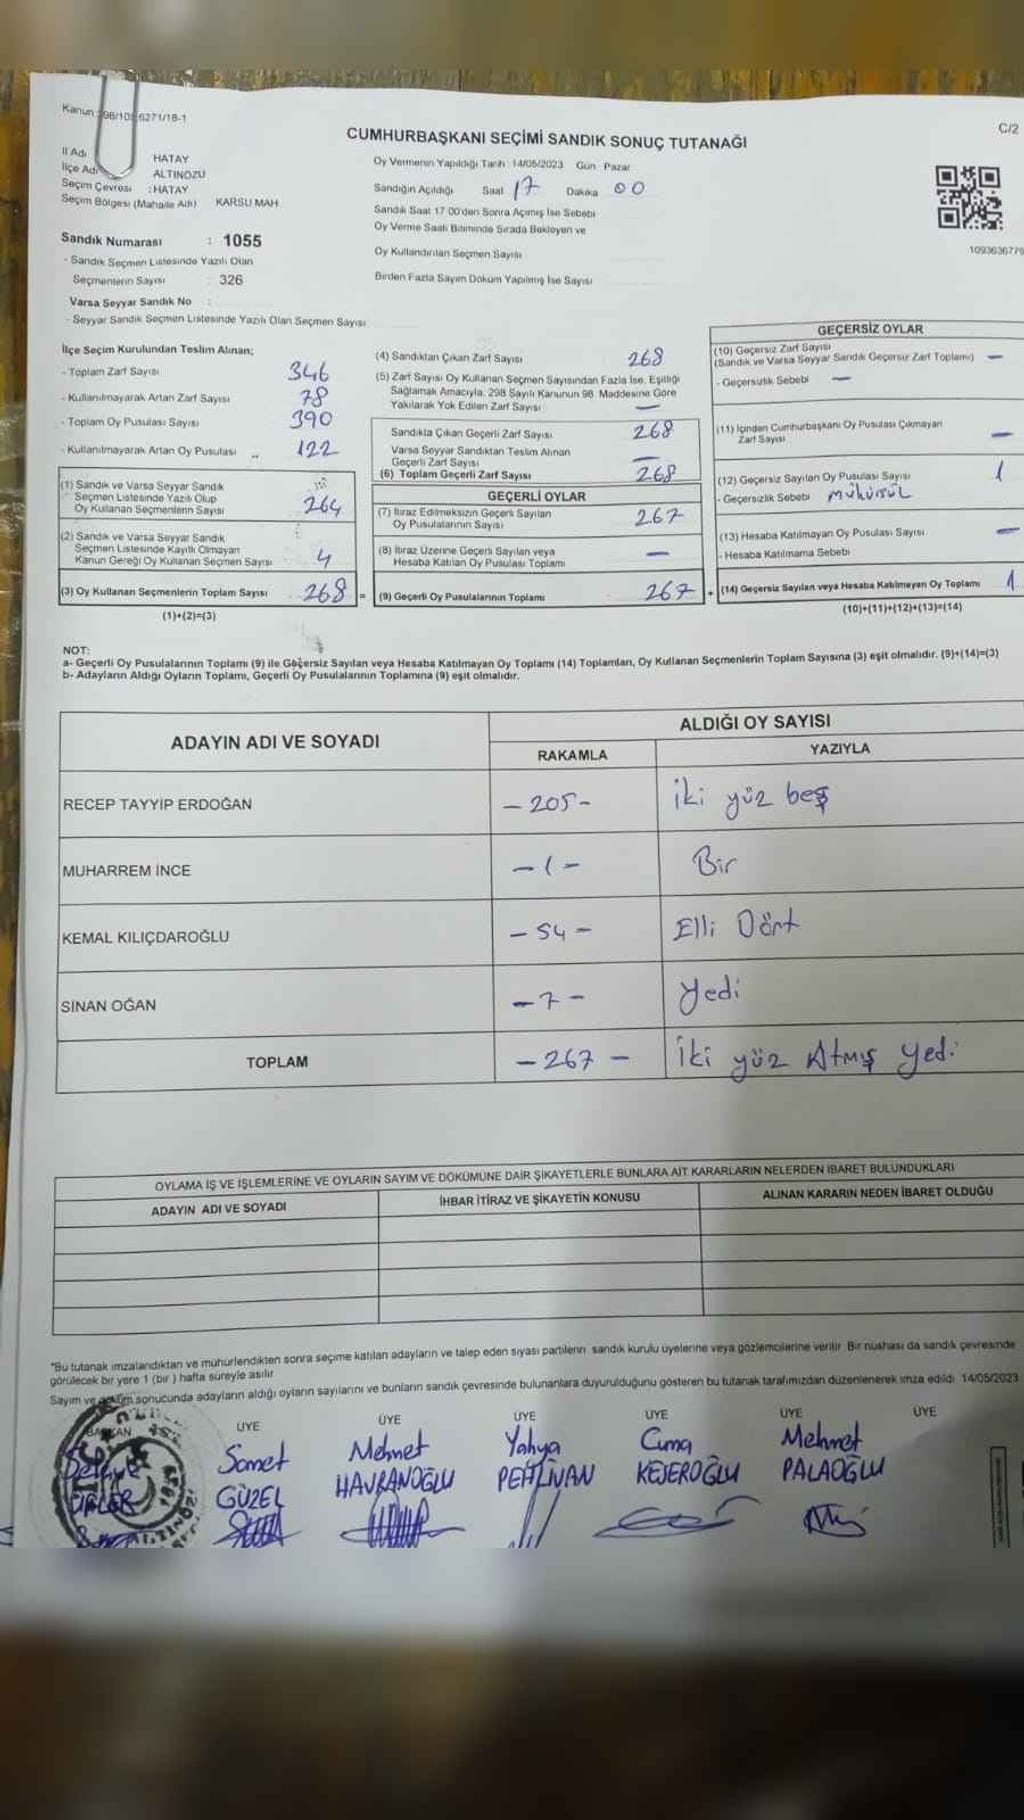 Kanun : 298/10; 6271/18-1
C/2
CUMHURBAŞKANI SEÇİMİ SANDIK SONUÇ TUTANAĞI
İl Adı HATAY
İlçe Adı ALTINÖZÜ
Seçim Çevresi : HATAY
Seçim Bölgesi (Mahalle Adı) KARSU MAH.
Oy Vermenin Yapıldığı Tarih: 14/05/2023 Gün: Pazar
Sandığın Açıldığı Saat 17 Dakika 00
Sandık Saat 17:00'den Sonra Açılmış İse Sebebi
Oy Verme Saati Bitiminde Sırada Bekleyen ve
Oy Kullandırılan Seçmen Sayısı
Birden Fazla Sayım Döküm Yapılmış İse Sayısı
Sandık Numarası : 1055
- Sandık Seçmen Listesinde Yazılı Olan
Seçmenlerin Sayısı : 326
Varsa Seyyar Sandık No :
- Seyyar Sandık Seçmen Listesinde Yazılı Olan Seçmen Sayısı
İlçe Seçim Kurulundan Teslim Alınan;
- Toplam Zarf Sayısı 346
- Kullanılmayarak Artan Zarf Sayısı 78
- Toplam Oy Pusulası Sayısı 390
- Kullanılmayarak Artan Oy Pusulası 122
(1) Sandık ve Varsa Seyyar Sandık
Seçmen Listesinde Yazılı Olup
Oy Kullanan Seçmenlerin Sayısı 264
(2) Sandık ve Varsa Seyyar Sandık
Seçmen Listesinde Kayıtlı Olmayan
Kanun Gereği Oy Kullanan Seçmen Sayısı 4
(3) Oy Kullanan Seçmenlerin Toplam Sayısı 268 =
(1)+(2)=(3)
(4) Sandıktan Çıkan Zarf Sayısı 268
(5) Zarf Sayısı Oy Kullanan Seçmen Sayısından Fazla İse, Eşitliği
Sağlamak Amacıyla, 298 Sayılı Kanunun 98. Maddesine Göre
Yakılarak Yok Edilen Zarf Sayısı —
Sandıkta Çıkan Geçerli Zarf Sayısı 268
Varsa Seyyar Sandıktan Teslim Alınan
Geçerli Zarf Sayısı —
(6) Toplam Geçerli Zarf Sayısı 268
GEÇERLİ OYLAR
(7) İtiraz Edilmeksizin Geçerli Sayılan
Oy Pusulalarının Sayısı 267
(8) İtiraz Üzerine Geçerli Sayılan veya
Hesaba Katılan Oy Pusulası Toplamı —
(9) Geçerli Oy Pusulalarının Toplamı 267 +
1093636779
GEÇERSİZ OYLAR
(10) Geçersiz Zarf Sayısı
(Sandık ve Varsa Seyyar Sandık Geçersiz Zarf Toplamı) —
- Geçersizlik Sebebi —
(11) İçinden Cumhurbaşkanı Oy Pusulası Çıkmayan
Zarf Sayısı —
(12) Geçersiz Sayılan Oy Pusulası Sayısı 1
- Geçersizlik Sebebi mühürsüz
(13) Hesaba Katılmayan Oy Pusulası Sayısı —
- Hesaba Katılmama Sebebi
(14) Geçersiz Sayılan veya Hesaba Katılmayan Oy Toplamı 1
(10)+(11)+(12)+(13)=(14)
NOT:
a- Geçerli Oy Pusulalarının Toplamı (9) ile Geçersiz Sayılan veya Hesaba Katılmayan Oy Toplamı (14) Toplamları, Oy Kullanan Seçmenlerin Toplam Sayısına (3) eşit olmalıdır. (9)+(14)=(3)
b- Adayların Aldığı Oyların Toplamı, Geçerli Oy Pusulalarının Toplamına (9) eşit olmalıdır.
ADAYIN ADI VE SOYADI
ALDIĞI OY SAYISI
RAKAMLA YAZIYLA
RECEP TAYYİP ERDOĞAN - 205 - İki yüz beş
MUHARREM İNCE - 1 - Bir
KEMAL KILIÇDAROĞLU - 54 - Elli Dört
SİNAN OĞAN - 7 - Yedi
TOPLAM - 267 - İki yüz Atmış Yedi
OYLAMA İŞ VE İŞLEMLERİNE VE OYLARIN SAYIM VE DÖKÜMÜNE DAİR ŞİKAYETLERLE BUNLARA AİT KARARLARIN NELERDEN İBARET BULUNDUKLARI
ADAYIN ADI VE SOYADI İHBAR İTİRAZ VE ŞİKAYETİN KONUSU ALINAN KARARIN NEDEN İBARET OLDUĞU
"Bu tutanak imzalandıktan ve mühürlendikten sonra seçime katılan adayların ve talep eden siyasi partilerin sandık kurulu üyelerine veya gözlemcilerine verilir. Bir nüshası da sandık çevresinde
görülecek bir yere 1 (bir) hafta süreyle asılır.
Sayım ve döküm sonucunda adayların aldığı oyların sayılarını ve bunların sandık çevresinde bulunanlara duyurulduğunu gösteren bu tutanak tarafımızdan düzenlenerek imza edildi. 14/05/2023
BAŞKAN ÜYE ÜYE ÜYE ÜYE ÜYE ÜYE
Samet Mehmet Yahya Cuma Mehmet
GÜZEL HAVRANOĞLU PEHLİVAN KEJEROĞLU PALAOĞLU